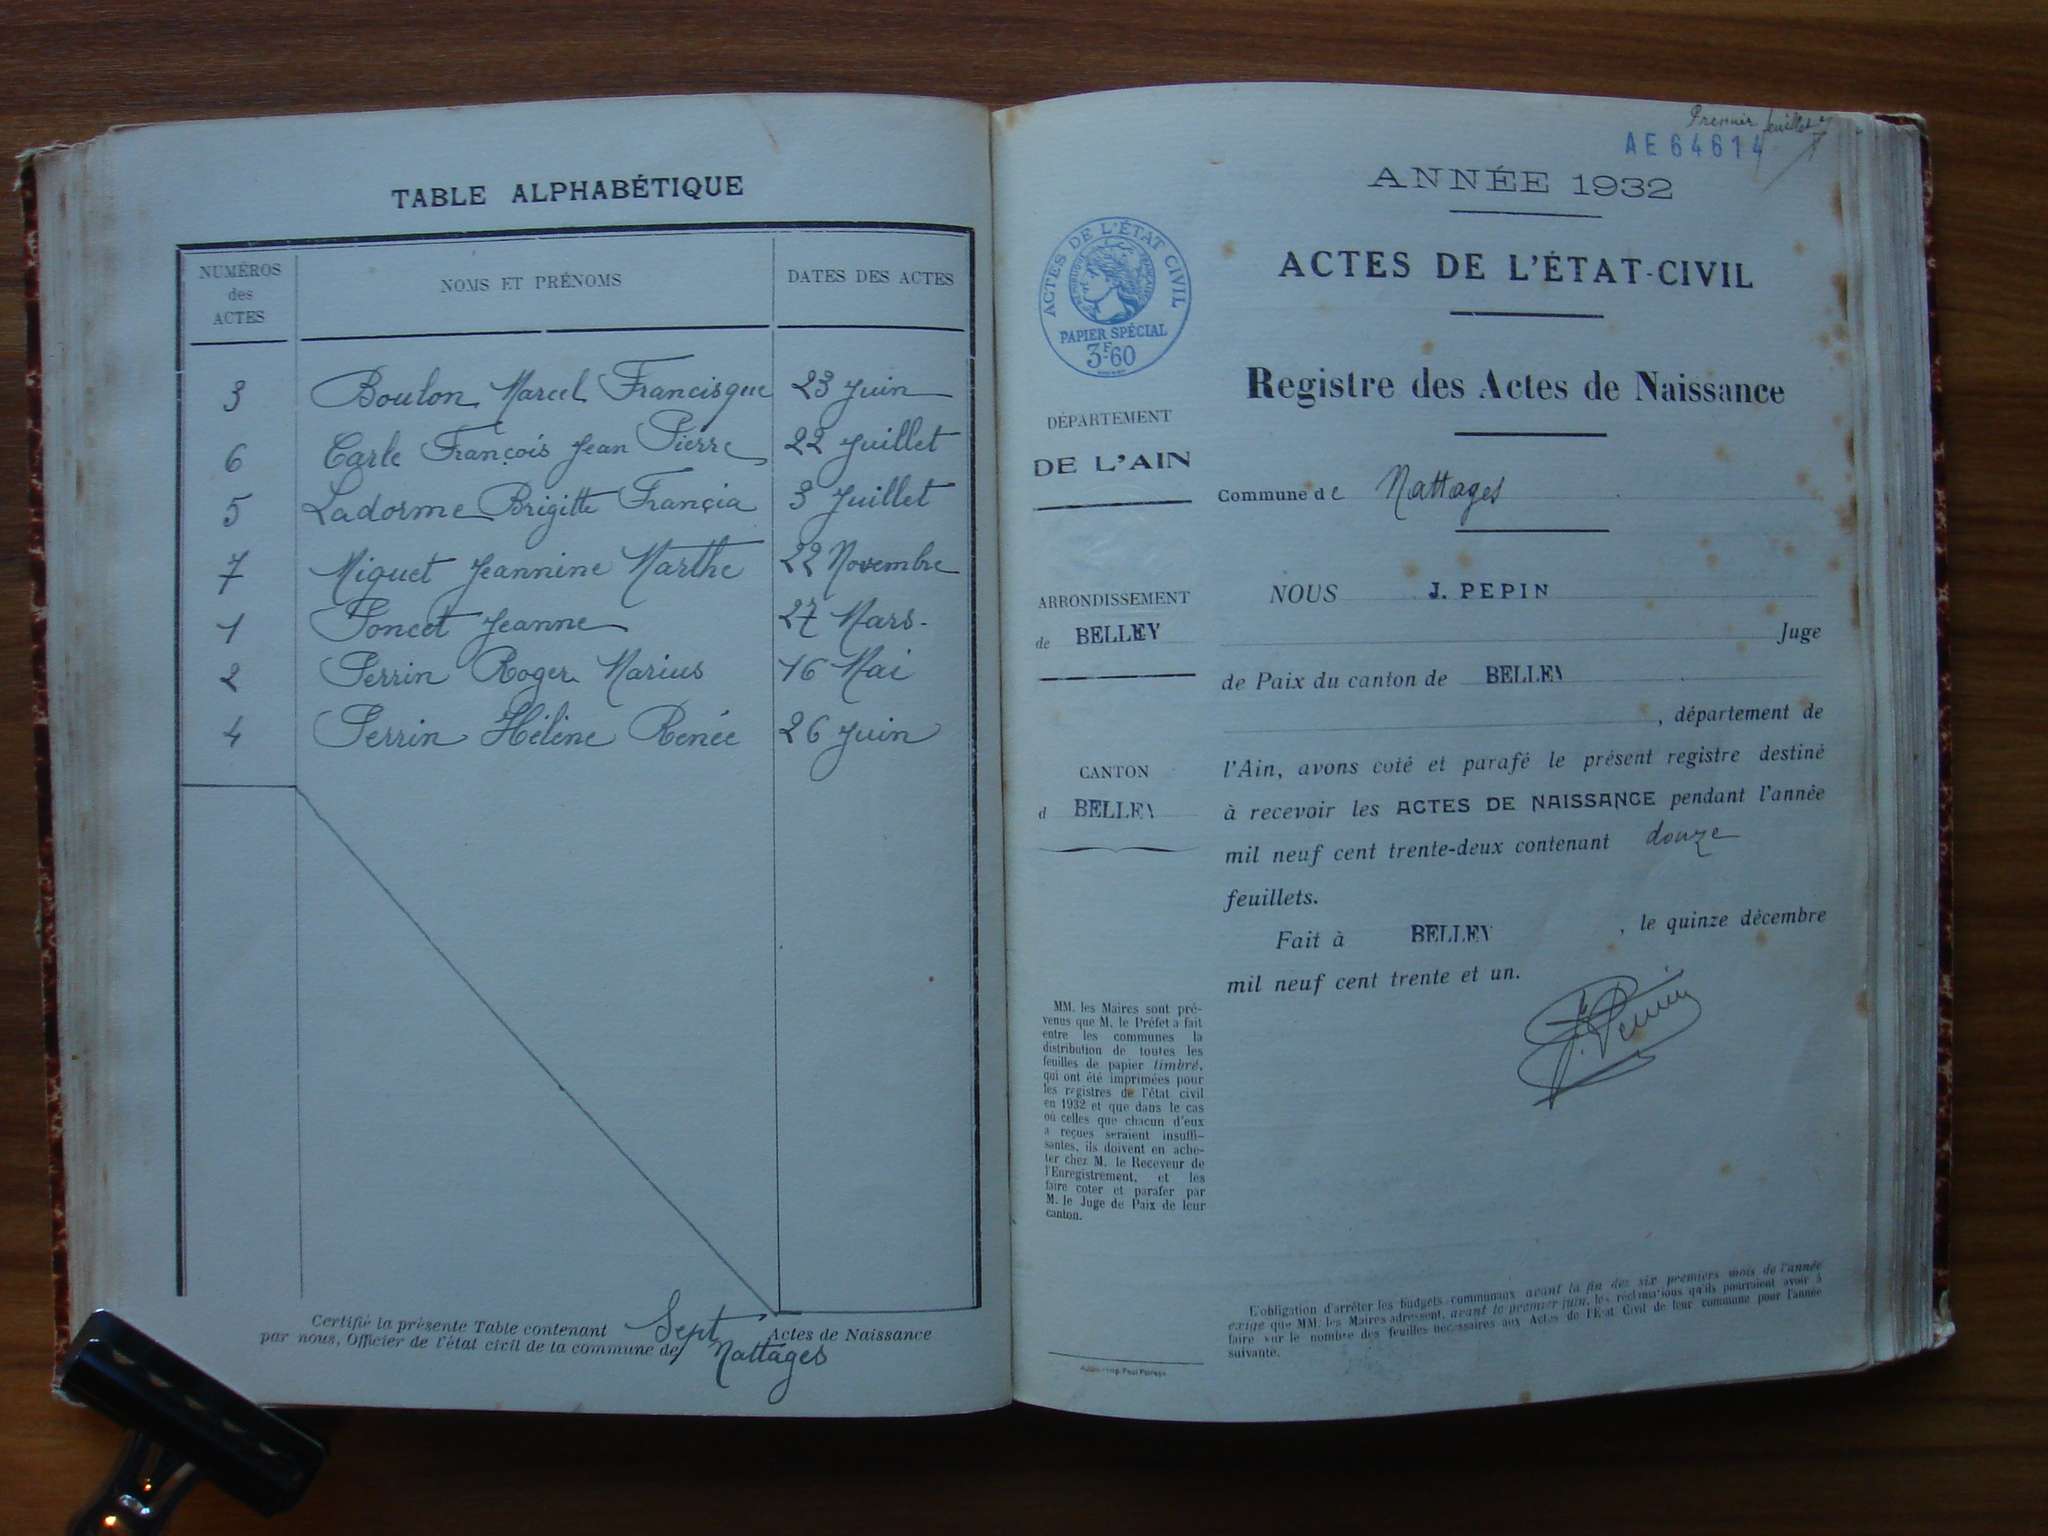 TABLE ALPHABÉTIQUE
NUMÉROS des ACTES NOMS ET PRÉNOMS DATES DES ACTES
3 Boulon Marcel Francisque 23 Juin
6 Carle François Jean Pierre 22 Juillet
5 Ladorme Brigitte França 3 Juillet
7 Miguet Jeannine Marthe 22 Novembre
1 Poncet Jeanne 27 Mars
2 Perrin Roger Marius 16 Mai
4 Perrin Hélène Renée 26 Juin
Certifié la présente Table contenant Sept Actes de Naissance
par nous, Officier de l'état civil de la commune de Nattages
Premier feuillet
AE 64614
ANNÉE 1932
ACTES DE L'ÉTAT-CIVIL
Registre des Actes de Naissance
Commune de Nattages
NOUS J. PEPIN
Juge
de Paix du canton de BELLEY
, département de
l'Ain, avons coté et parafé le présent registre destiné
à recevoir les ACTES DE NAISSANCE pendant l'année
mil neuf cent trente-deux contenant douze
feuillets.
Fait à BELLEY , le quinze décembre
mil neuf cent trente et un.
J. Pepin
ACTES DE L'ÉTAT CIVIL
RÉPUBLIQUE FRANÇAISE
PAPIER SPÉCIAL
3F60
DÉPARTEMENT
DE L'AIN
ARRONDISSEMENT
de BELLEY
CANTON
d BELLEY
MM. les Maires sont pré-
venus que M. le Préfet a fait
entre les communes la
distribution de toutes les
feuilles de papier timbré,
qui ont été imprimées pour
les registres de l'état civil
en 1932 et que dans le cas
où celles que chacun d'eux
a reçues seraient insuffi-
santes, ils doivent en ache-
ter chez M. le Receveur de
l'Enregistrement, et les
faire coter et parafer par
M. le Juge de Paix de leur
canton.
L'obligation d'arrêter les budgets communaux avant la fin des six premiers mois de l'année
exige que MM. les Maires adressent, avant le premier juin, les réclamations qu'ils pourraient avoir à
faire sur le nombre des feuilles nécessaires aux Actes de l'État Civil de leur commune pour l'année
suivante.